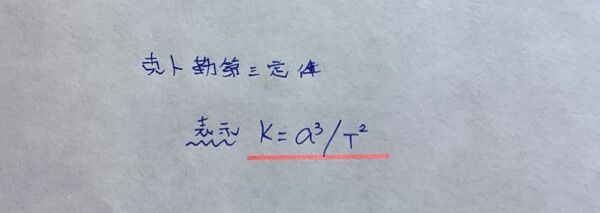 克卜勒第三定律
表示 K=a³/T²